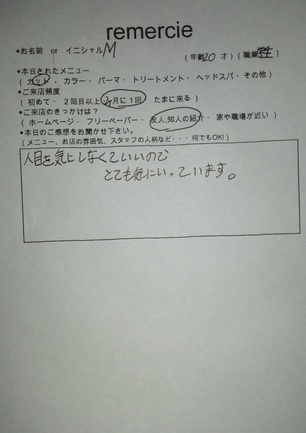 remercie
*お名前 or イニシャル M
(年齢 20 才) (職業 学生)
*本日されたメニュー
(カット・カラー・パーマ・トリートメント・ヘッドスパ・その他)
*ご来店頻度
(初めて・2回目以上・ヶ月に1回 たまに来る)
*ご来店のきっかけは?
(ホームページ・フリーペーパー・友人,知人の紹介・家や職場が近い)
*本日のご感想をお聞かせ下さい。
(メニュー、お店の雰囲気、スタッフの人柄など・・・何でもOK!)
人目を気にしなくていいので
とても気にいっています。